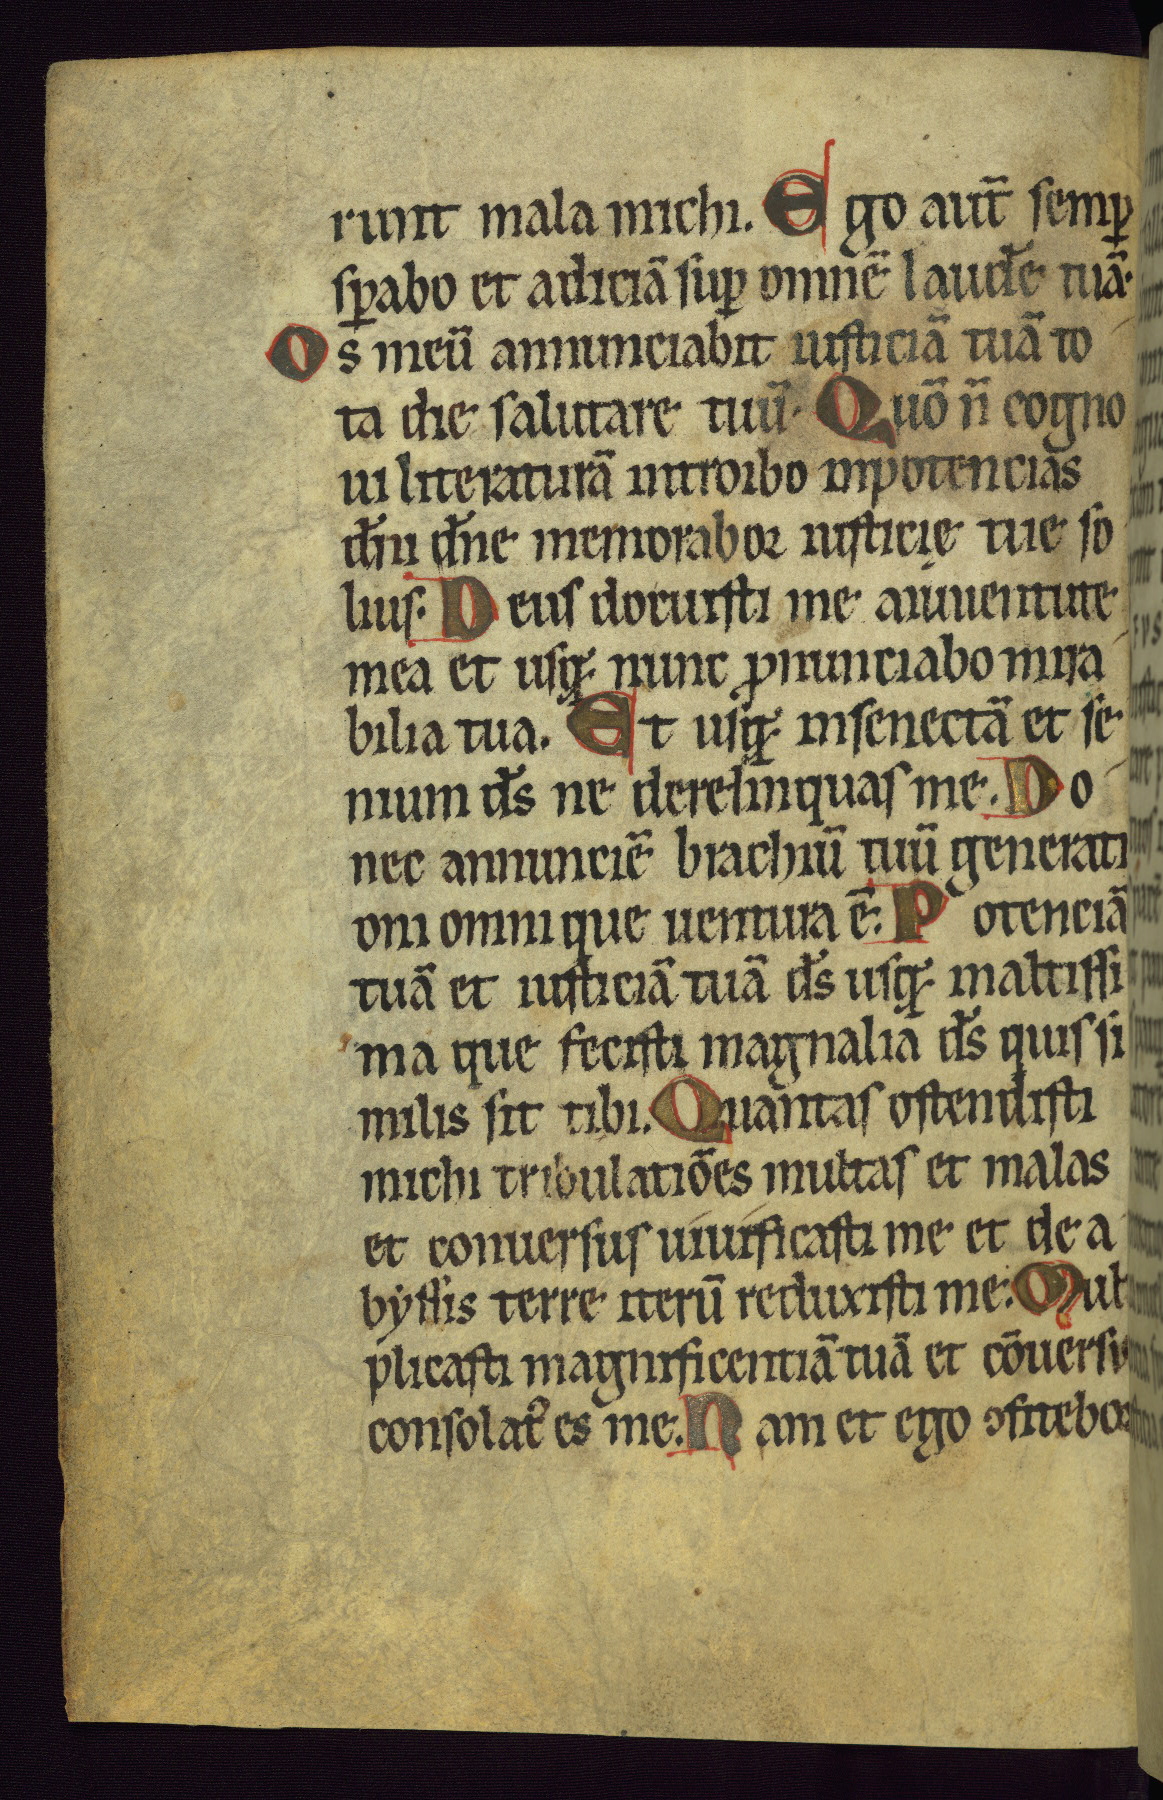 runt mala michi. Ego aut̄ semꝑ
sꝑabo et adiciā suꝑ omnē laudē tuā.
Os meū annunciabit iusticiā tuā to
ta die salutare tuū. Quō n̄ cogno
ui literaturā introibo inpotencias
dn̄i dn̄e memorabor iusticię tue so
lius. Deus docuisti me aiuuentute
mea et usq; nunc ꝓnunciabo mira
bilia tua. Et usq; insenectā et se
nium ds̄ ne derelinquas me. Do
nec annunciē brachiū tuū generati
oni omni que uentura ē. Potenciā
tuā et iusticiā tuā ds̄ usq; inaltissi
ma que fecisti magnalia ds̄ quis si
milis sit tibi. Quantas ostendisti
michi tribulatiōes multas et malas
et conuersus uiuificasti me et de a
byssis terre iterū reduxisti me. Mul
plicasti magnificentiā tuā et cōuersu
consolat᷒ es me. Nam et ego ꝯfitebor